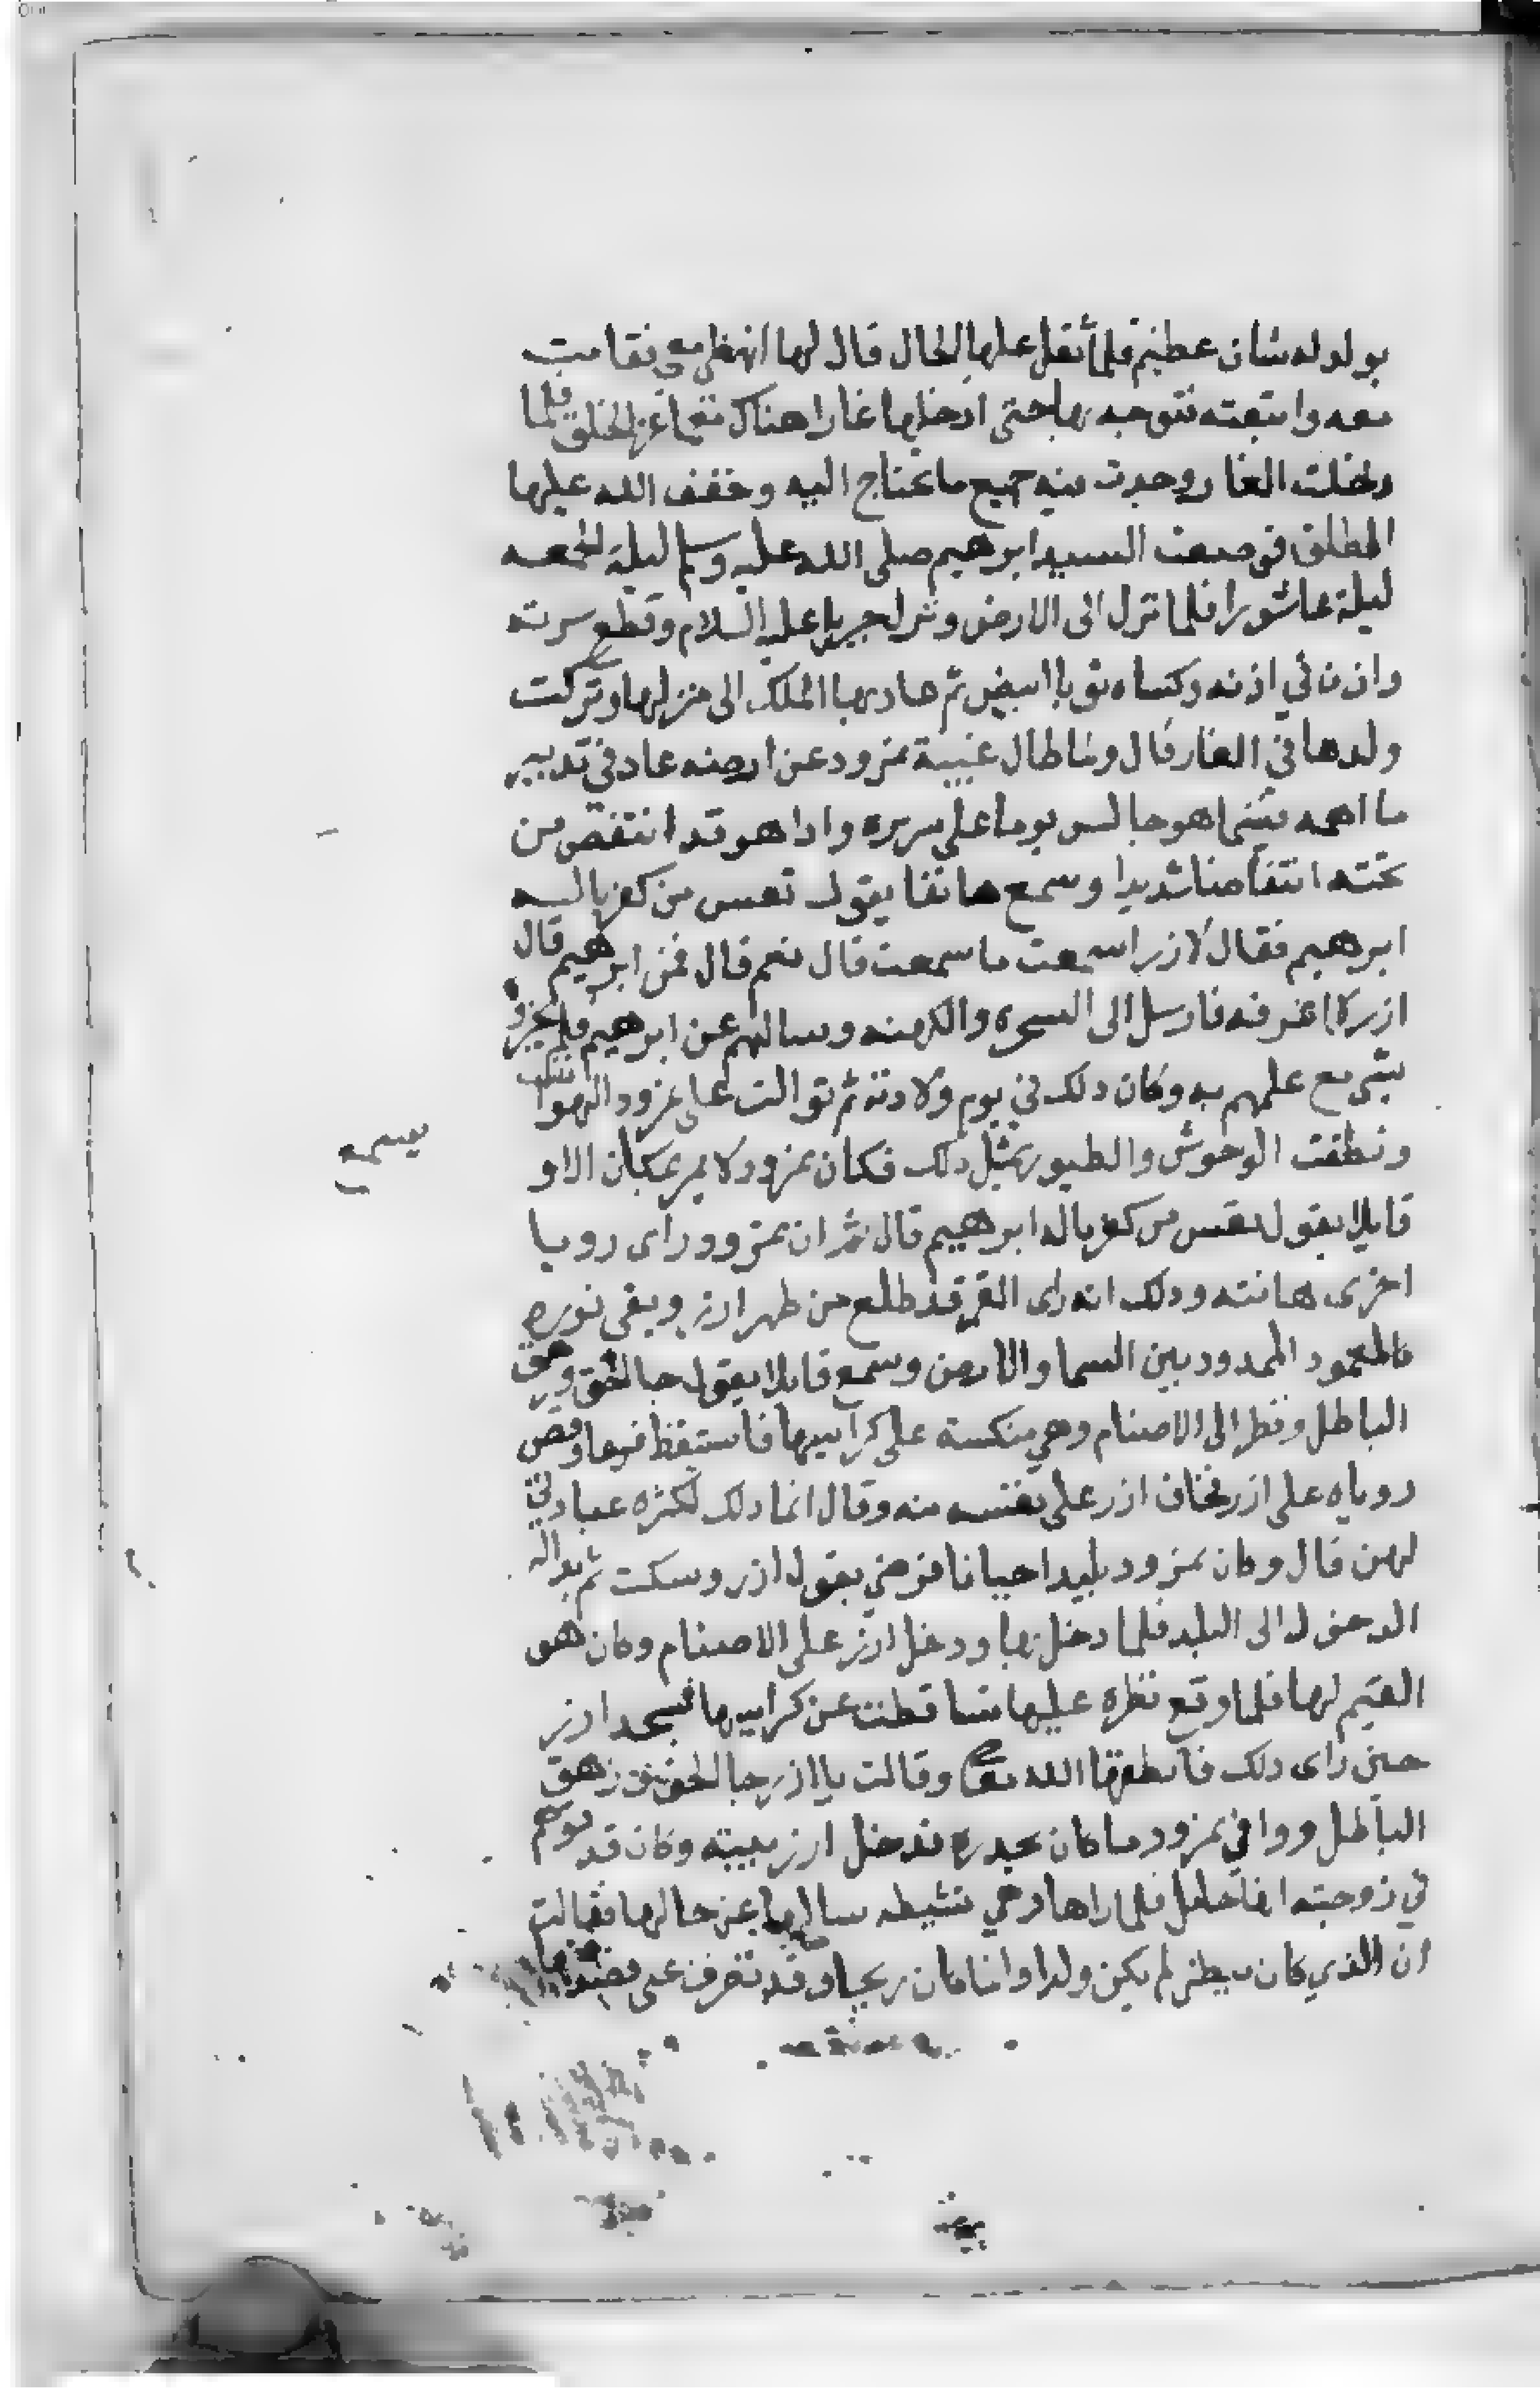 بولد له شان عظيم فلما ثقل عليها الحال قال لها انهضي معي فقامت
معه واتبعته فتوجه بها حتى ادخلها غارا هناك نقيا عن الخلق فلما
دخلت الغار وجدت فيه جميع ما تحتاج اليه وخفف الله عليها
المطلق فوضعت السيد ابرهيم صلى الله عليه وسلم ليلة الجمعه
ليلة عاشورا فلما نزل الى الارض ونزل جبريل عليه السلام وقطع سرته
واذن في اذنه وكساه ثوبا ابيض ثم عاد بها الملك الى منزلها وتركت
ولدها في الغار قال ولما طال غيبة نمرود عن ارضه عاد في تدبير
ما اهمه فبينما هو جالس يوما على سريره واذا هو قد انتفض من
تحته انتفاضا شديدا وسمع هاتفا يقول تعس من كفر باله
ابرهيم فقال لازر اسمعت ما سمعت قال نعم قال فمن ابرهيم قال
ازر لا اعرفه فارسل الى السحره والكهنه وسالهم عن ابرهيم فلم يخبروه
بشي مع علمهم به وكان ذلك في يوم ولادته ثم توالت على نمرود الهواتف
ونطقت الوحوش والطيور بمثل ذلك فكان نمرود لا يمر بمكان الا و
يسمع
قايلا يقول تعس من كفر باله ابرهيم قال ثم ان نمرود راى رويا
اخرى هالته وذلك انه راى القمر قد طلع من ظهر ازر وبقي نوره
كالعمود الممدود بين السما والارض وسمع قايلا يقول جا الحق وزهق
الباطل ونظر الى الاصنام وهي منكسة على كراسيها فاستيقظ فزعا وقص
روياه على ازر فخاف ازر على نفسه منه وقال انما ذلك لكثره عبادتي
لهن قال وكان نمرود بليدا احيانا فرضي بقول ازر وسكت ثم بدا له
الدخول الى البلد فلما دخل بها ودخل ازر على الاصنام وكان هو
القيم لها فلما وقع نظره عليها تساقطت عن كراسيها فسجد ازر
حين راى ذلك فانطقها الله تعالى وقالت يا ازر جا الحق وزهق
الباطل ووافى نمرود ما كان يحذره فدخل ازر بيته وكان قد توهم
في زوجته انها حامل فلما راها وهي نشيطه سالها عن حالها فقالت
ان الذي كان ببطني لم يكن ولدا وانما كان ريحا وقد تفرق عني